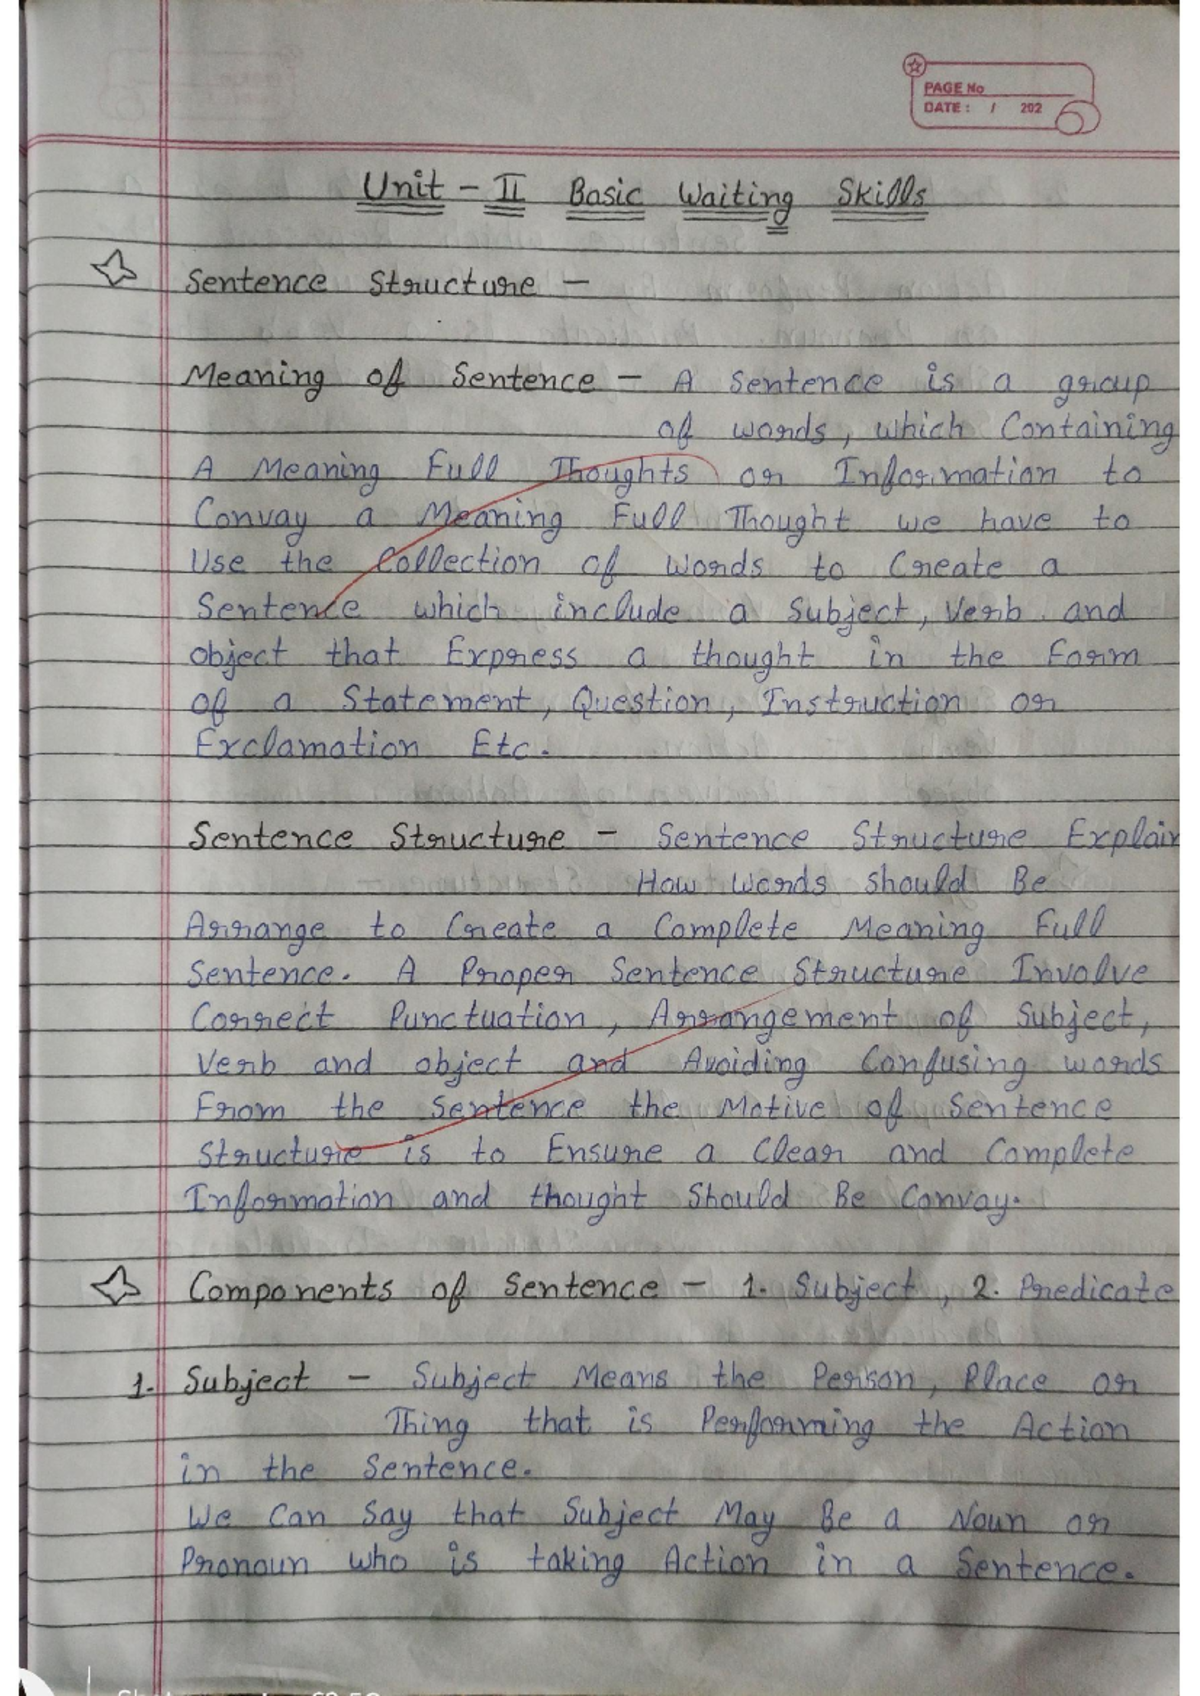 PAGE No
DATE : / 202
Unit - II Basic Waiting Skills
Sentence Structure -
Meaning of Sentence - A Sentence is a group
of words, which Containing
A Meaning Full Thoughts or Information to
Convay a Meaning Full Thought we have to
Use the Collection of Words to Create a
Sentence which include a Subject, Verb and
object that Express a thought in the Form
of a Statement, Question, Instruction or
Exclamation Etc.
Sentence Structure - Sentence Structure Explain
How Words should Be
Arrange to Create a Complete Meaning Full
Sentence. A Proper Sentence Structure Involve
Correct Punctuation, Arrangement of Subject,
Verb and object and Avoiding Confusing words
From the Sentence the Motive of Sentence
Structure is to Ensure a Clear and Complete
Information and thought Should Be Convay.
Components of Sentence - 1. Subject, 2. Predicate
1. Subject - Subject Means the Person, Place or
Thing that is Performing the Action
in the Sentence.
We Can Say that Subject May Be a Noun or
Pronoun who is taking Action in a Sentence.